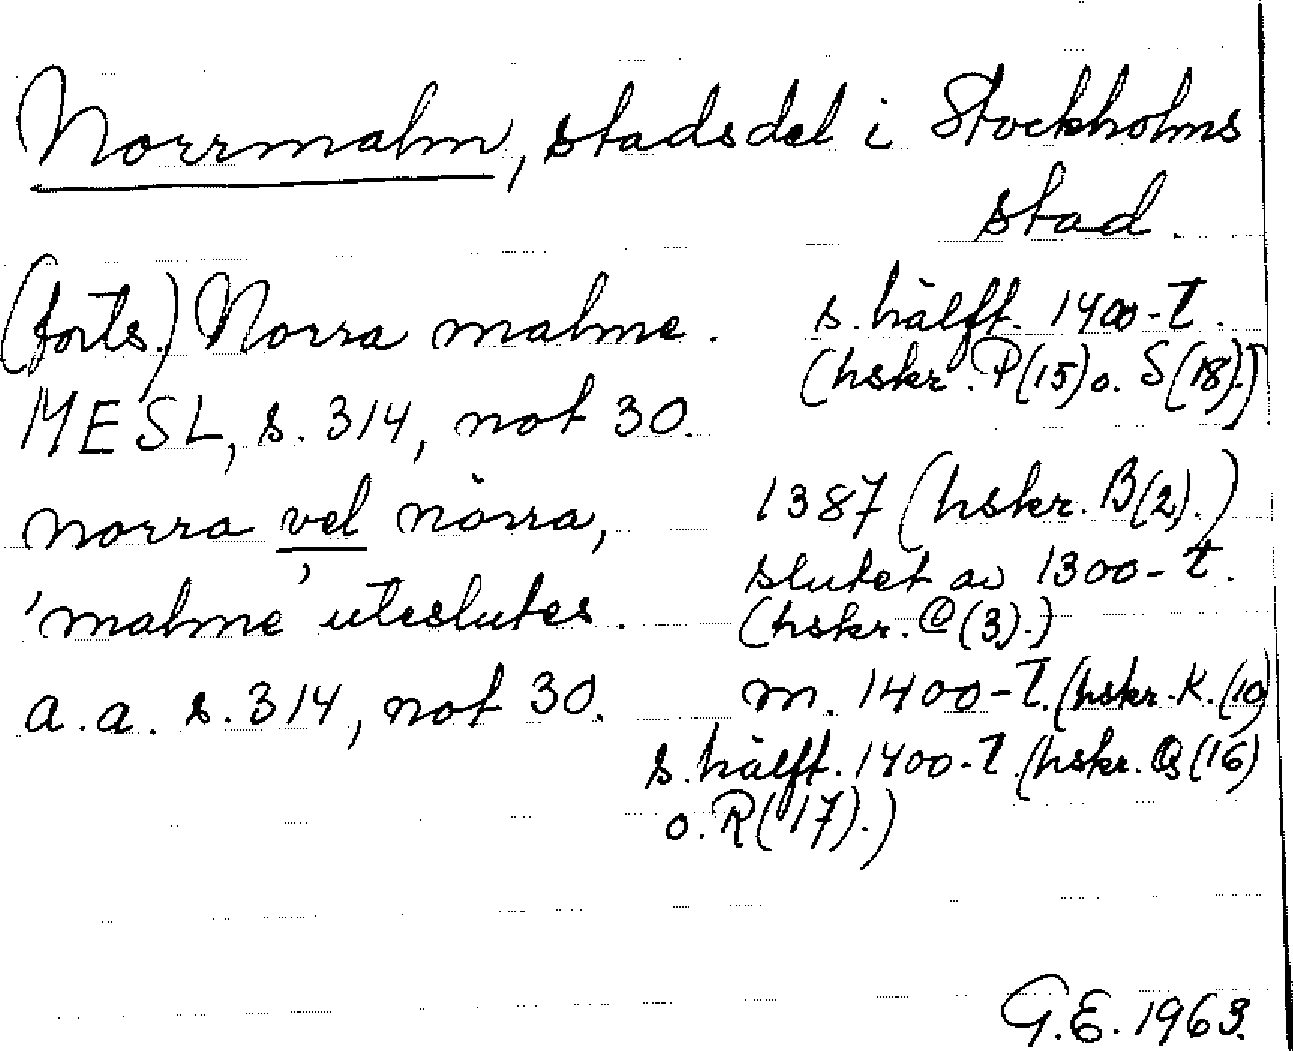 Norrmalm, stadsdel i Stockholms
stad.
(forts.) Norra malme. s. hälft. 1400-t.
(hskr. P(15) o. S(18).)
MESL, s. 314, not 30.
norra vel nörra, 1387 (hskr. B(2).)
slutet av 1300-t.
'malme' uteslutes. (hskr. C(3).)
a.a. s. 314, not 30. m. 1400-t. (hskr. K.(10)
s. hälft. 1400-t. (hskr. Q(16)
o. R(17).)
G.E. 1963.